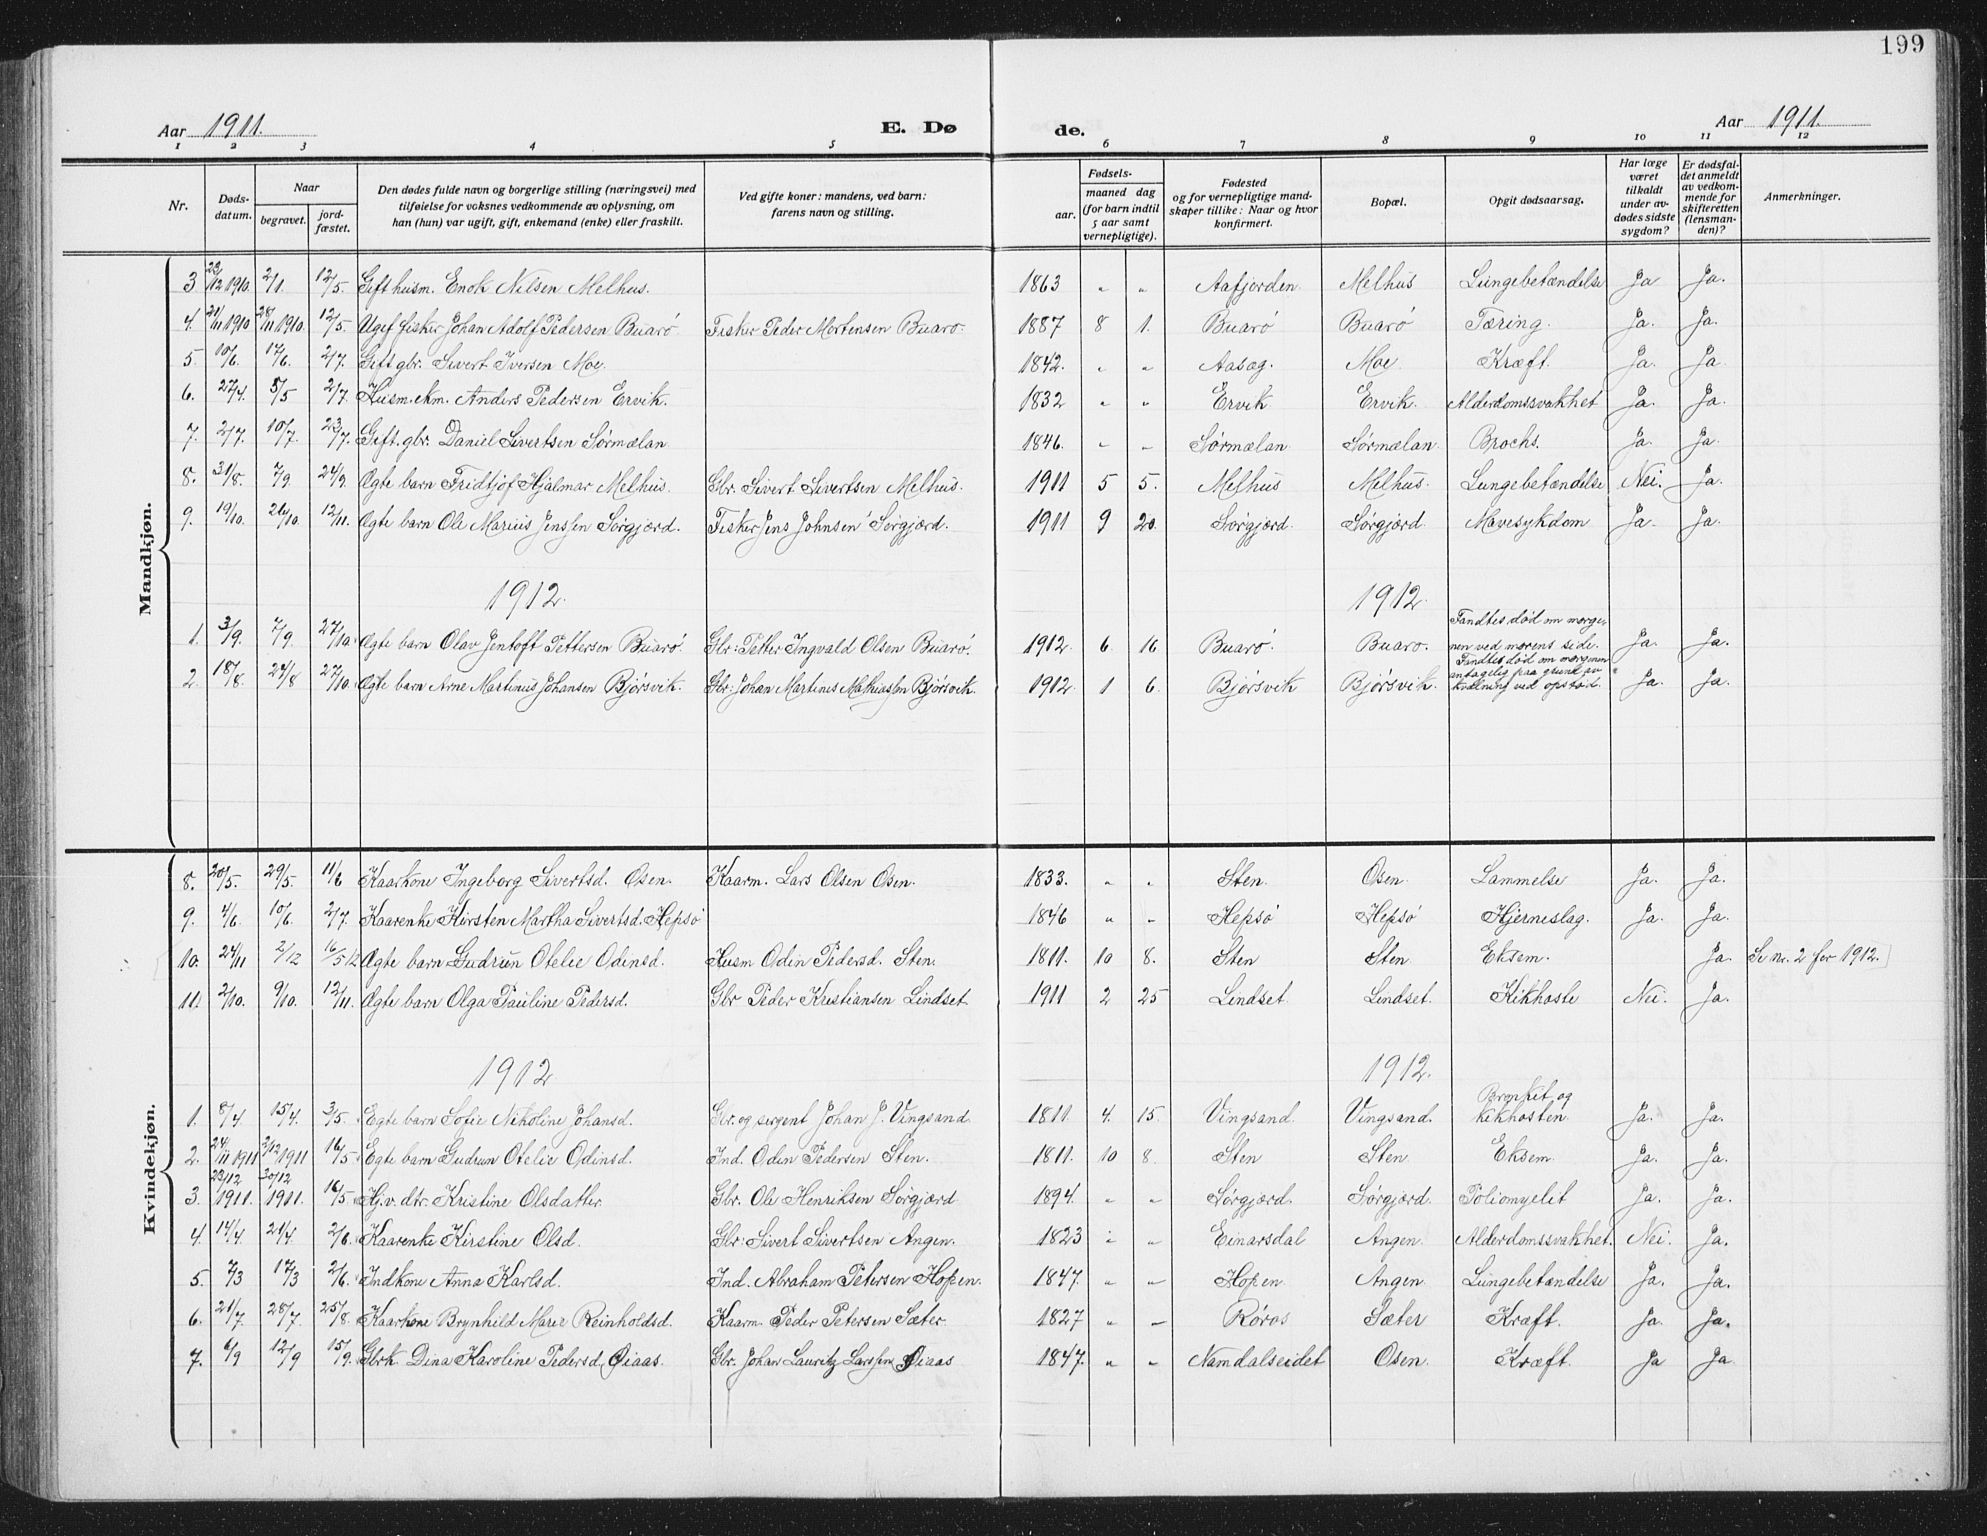 199
Aar 1911. E. Dø de. Aar 1911.
1 2 3 4 5 6 7 8 9 10 11 12
Nr. Døds-datum. Naar begravet. jord-fæstet. Den dødes fulde navn og borgerlige stilling (næringsvei) med tilføielse for voksnes vedkommende av oplysning, om han (hun) var ugift, gift, enkemand (enke) eller fraskilt. Ved gifte koner: mandens, ved barn: farens navn og stilling. Fødsels- aar. maaned dag (for barn indtil 5 aar samt vernepligtige). Fødested og for vernepligtige mand-skaper tillike: Naar og hvor konfirmert. Bopæl. Opgit dødsaarsag. Har læge været tilkaldt under av-dødes sidste sygdom? Er dødsfal-det anmeldt av vedkom-mende for skifteretten (lensman-den)? Anmerkninger.
Mandkjøn.
3 22/12 1910. 2/1. 12/5. Gift husm. Enok Nilsen Melhus. 1863 " " Aafjorden Melhus Lungebetændelse Ja Ja.
4. 21/11 1910 28/11 1910. 12/5. Ugift fisker Johan Adolf Pedersen Buarø. Fisker Peder Mortensen Buarø. 1887 8 1. Buarø Buarø Tæring. Ja. Ja.
5. 10/6. 17/6. 2/7. Gift gbr. Sivert Iversen Moe. 1842. " " Aasag. Moe. Kræft. Ja. Ja.
6. 27/4. 5/5 2/7. Husm. ekm. Anders Pedersen Ervik. 1832 " " Ervik Ervik. Alderdomssvakhet Ja. Ja.
7. 2/7. 10/7. 23/7. Gift. gbr. Daniel Sivertsen Sørmælan. 1846. " " Sørmælan Sørmælan. Brochs. Ja. Ja.
8. 31/8. 7/9. 24/9. Ægte barn Fridtjof Hjalmar Melhus. Gbr. Sivert Sivertsen Melhus. 1911 5 5. Melhus Melhus. Lungebetændelse Nei. Ja.
9. 19/10. 26/10. 12/11. Ægte barn Ole Marius Jenssen Sørgjærd. Fisker Jens Johnsen Sørgjærd. 1911 9 20. Sørgjærd. Sørgjærd Mavesykdom Ja. Ja.
1912. 1912.
1. 3/9. 7/9. 27/10. Ægte barn Olav Jentoft Pettersen Buarø. Gbr: Petter Ingvald Olsen Buarø. 1912. 6. 16 Buarø. Buarø. Fandtes død om morge-nen ved morens side. Ja. Ja.
2. 18/8. 24/8 27/10. Ægte barn Arne Martinus Johansen Bjørsvik. Gbr: Johan Martinus Mathiassen Bjørsvik. 1912. 1 6. Bjørsvik Bjørsvik. Fandtes død om morgenen antagelig paa grund av kvælning ved opstød. Ja. Ja.
Kvindekjøn.
8. 20/5. 29/5. 11/6 Kaarkone Ingeborg Sivertsd. Osen. Kaarm. Lars Olsen Osen. 1833. " " Sten. Osen. Lammelse Ja. Ja.
9. 4/6. 10/6. 2/7. Kaarenke Kirsten Martha Sivertsd. Hepsø 1846 " " Hepsø Hepsø Hjerneslag. Ja. Ja.
10. 24/11 2/12 16/5 12 Ægte barn Gudrun Otelie Odinsd. Husm Odin Pedersd. Sten. 1811. 10 8. Sten Sten. Eksem. Ja. Se nr. 2 for 1912.
11. 2/10. 9/10. 12/11. Ægte barn Olga Pauline Pedersd. Gbr Peder Kristiansen Lindset 1911 2 25 Lindset. Lindset. Kikhoste Nei. Ja.
1912 1912.
1. 8/4. 15/4. 3/5. Egte barn Sofie Nikoline Johansd. Gbr. og sergent Johan J. Vingsand. 1811. 4. 15. Vingsand. Vingsand. Bronkit og kikhosten Ja. Ja.
2. 24/11 1911 2/12 1911 16/5 Egte barn Gudrun Otelie Odinsd. Ind. Odin Pedersen Sten. 1811. 10 8. Sten Sten. Eksem. Ja. Ja.
3. 23/12 1911. 30/12 1911. 16/5. Hj.v. dtr. Kristine Olsdatter. Gbr. Ole Henriksen Sørgjærd 1894. " " Sørgjærd. Sørgjærd. Poliomyelit Ja. Ja.
4. 14/4. 21/4. 2/6. Kaarenke Kirstine Olsd. Gbr: Sivert Sivertsen Angen. 1823 " " Einarsdal Angen. Alderdomssvakhet. Nei. Ja.
5. 7/3 17/3 2/6. Indkone Anna Karlsd. Ind. Abraham Petersen Hopen. 1847. " " Hopen Angen Lungebetændelse Ja. Ja.
6. 21/7. 28/7. 25/8. Kaarkone Brynhild Marer Reinholdsd. Kaarm. Peder Petersen Sæter. 1827 " " Røros Sæter Kræft. Ja. Ja.
7. 6/9 12/9 15/9. Gbrk. Dina Karoline Pedersd. Øiaas. Gbr. Johan Lauritz Larssen Øiaas 1847. " " Namdalseidet Osen Kræft. Ja Ja.